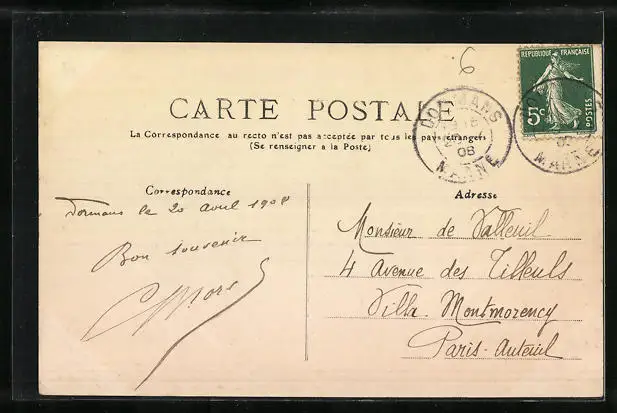 6
REPUBLIQUE FRANÇAISE
5c
POSTES
CARTE POSTALE
La Correspondance au recto n'est pas acceptée par tous les pays étrangers
(Se renseigner à la Poste)
DORMANS
20
08
MARNE
MARNE
Correspondance
Dormans le 20 avril 1908
Bon souvenir
Adresse
Monsieur de Valleuil
4 Avenue des Tilleuls
Villa Montmorency
Paris-Auteuil